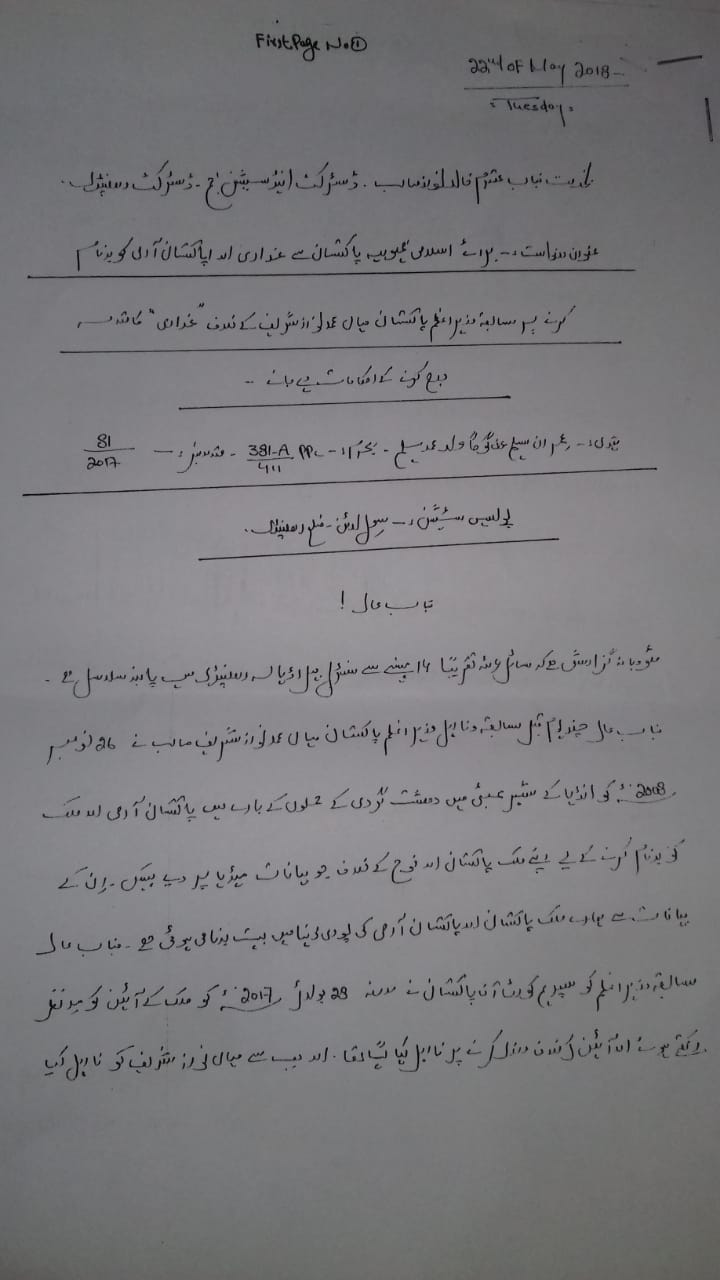 First Page No ①
22nd of May 2018
Tuesday
بخدمت جناب محترم خالد نواز صاحب ۔ ڈسٹرکٹ اینڈ سیشن جج ۔ ڈسٹرکٹ راولپنڈی ۔
عنوان درخواست :- برائے اسلامی جمہوریہ پاکستان سے غداری اور پاکستان آرمی کو بدنام
کرنے پر سابقہ وزیراعظم پاکستان میاں محمد نواز شریف کے خلاف "غداری" کا مقدمہ
درج کرنے کے احکامات دیے جانے --
مدعی :- عمران سلیم ولد محمد سلیم ۔ بجرم :- 381-A/411 PPC ۔ مقدمہ نمبر :- 81/2017
پولیس سٹیشن :- سول لائن ۔ ضلع راولپنڈی ۔
جناب عالی !
مؤدبانہ گزارش ہے کہ سائل عرصہ تقریباً 14 مہینے سے سنٹرل جیل اڈیالہ راولپنڈی میں پابند سلاسل ہے ۔
جناب عالی چند ایام قبل سابقہ و نااہل وزیراعظم پاکستان میاں محمد نواز شریف صاحب نے 26 نومبر
2008ء کو انڈیا کے شہر ممبئی میں دہشت گردی کے حملوں کے بارے میں پاکستان آرمی اور ملک
کو بدنام کرنے کے لیے اپنے ملک پاکستان اور فوج کے خلاف جو بیانات میڈیا پر دیے ہیں ۔ ان کے
بیانات سے ہمارے ملک پاکستان اور پاکستان آرمی کی پوری دنیا میں بہت بدنامی ہوئی ہے ۔ جناب عالی
سابقہ وزیراعظم کو سپریم کورٹ آف پاکستان نے مورخہ 28 جولائی 2017ء کو ملک کے آئین کو مدنظر
رکھتے ہوئے اور آئین کی خلاف ورزی کرنے پر نااہل کیا گیا تھا ۔ اور جب سے میاں نواز شریف کو نااہل کیا